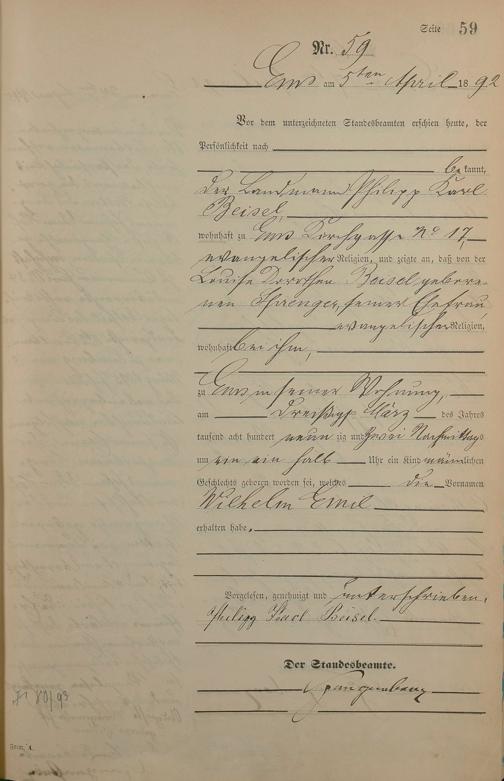 Seite 59
Nr. 59
Ems am 5ten April 1892
Vor dem unterzeichneten Standesbeamten erschien heute, der
Persönlichkeit nach
bekannt,
der Landmann Philipp Karl
Beisel,
wohnhaft zu Ems Kirchgasse No 17,
evangelischer Religion, und zeigte an, daß von der
Louise Dorothea Beisel gebore-
nen Sprenger, seiner Ehefrau,
evangelischer Religion,
wohnhaft bei ihm,
zu Ems in seiner Wohnung,
am März des Jahres
tausend acht hundert neunzig und zwei Nachmittags
um ein ein halb Uhr ein Kind männlichen
Geschlechts geboren worden sei, welches die Vornamen
Wilhelm Emil
erhalten habe.
Vorgelesen, genehmigt und unterschrieben.
Philipp Karl Beisel.
Der Standesbeamte.
Spangenberg
Form. A.